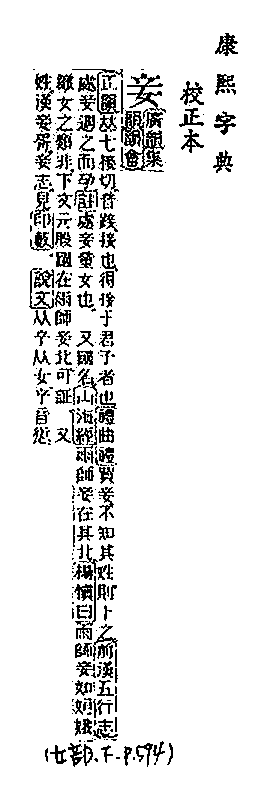 康熙字典
校正本
妾
廣韻集
韻韻會
正韻𠀤七接切音踥接也得接于君子者也禮曲禮買妾不知其姓則卜之前漢五行志
處妾遇之而孕註處妾童女也 又國名山海經雨師妾在其北楊愼曰雨師妾如姮娥
織女之類非下文元股國在雨師妾北可証 又
姓漢妾胥妾志見印藪 說文从䇂从女䇂音愆
(女部.下.P.594)